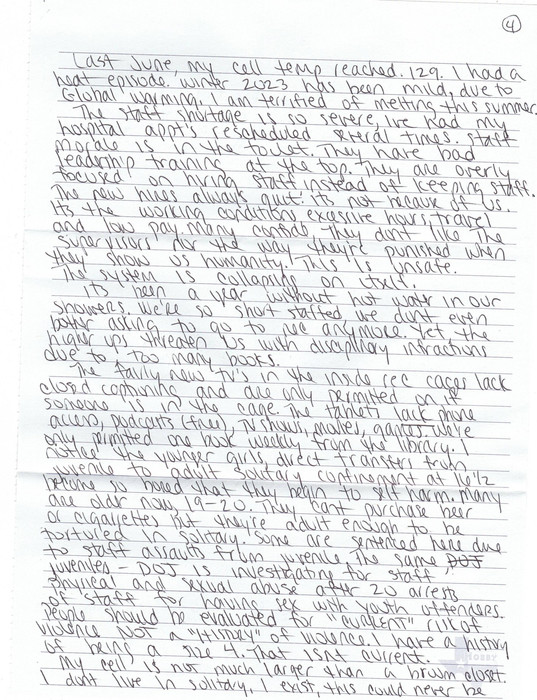 4
Last June, my cell temp reached. 129. I had a
heat episode. Winter 2023 has been mild, due to
Global warming. I am terrified of melting this summer.
The staff shortage is so severe, ive had my
hospital appt's rescheduled several times. Staff
morale is in the toilet. They have bad
leadership training at the top. They are overly
focused on hiring staff instead of keeping staff.
The new hires always quit. its not because of us.
Its the working conditions, excessive hours, travel
and low pay. Many confide, They dont like the
supervisors nor the way they're punished when
they show us humanity. This is unsafe.
The system is collapsing on itself.
Its been a year without hot water in our
showers. We're so short staffed we dont even
bother asking to go to rec anymore. Yet the
higher ups threaten us with disciplinary infractions
due to too many books.
The fairly new tv's in the inside rec cages lack
closed captioning and are only permitted on if
someone is in the cage. The tablets lack phone
access, podcasts (free), TV shows, movies, games. We're
only permitted one book weekly from the library. I
notice the younger girls, direct transfers from
juvenile to adult solitary confinement at 16 1/2
become so bored that they begin to self harm. Many
are older now, 19-20. They cant purchase beer
or cigarettes but they're adult enough to be
tortured in solitary. Some are sentenced here due
to staff assaults from juvenile. The same DOJ
juveniles - DOJ is investigating for staff
physical and sexual abuse after 20 arrests
of staff for having sex with youth offenders.
People should be evaluated for "current" risk of
violence not a "HISTORY" of violence. I have a history
of being a size 4. That isnt current.
My cell is not much larger than a broom closet.
I dont live in solitary. I exist, this could never be